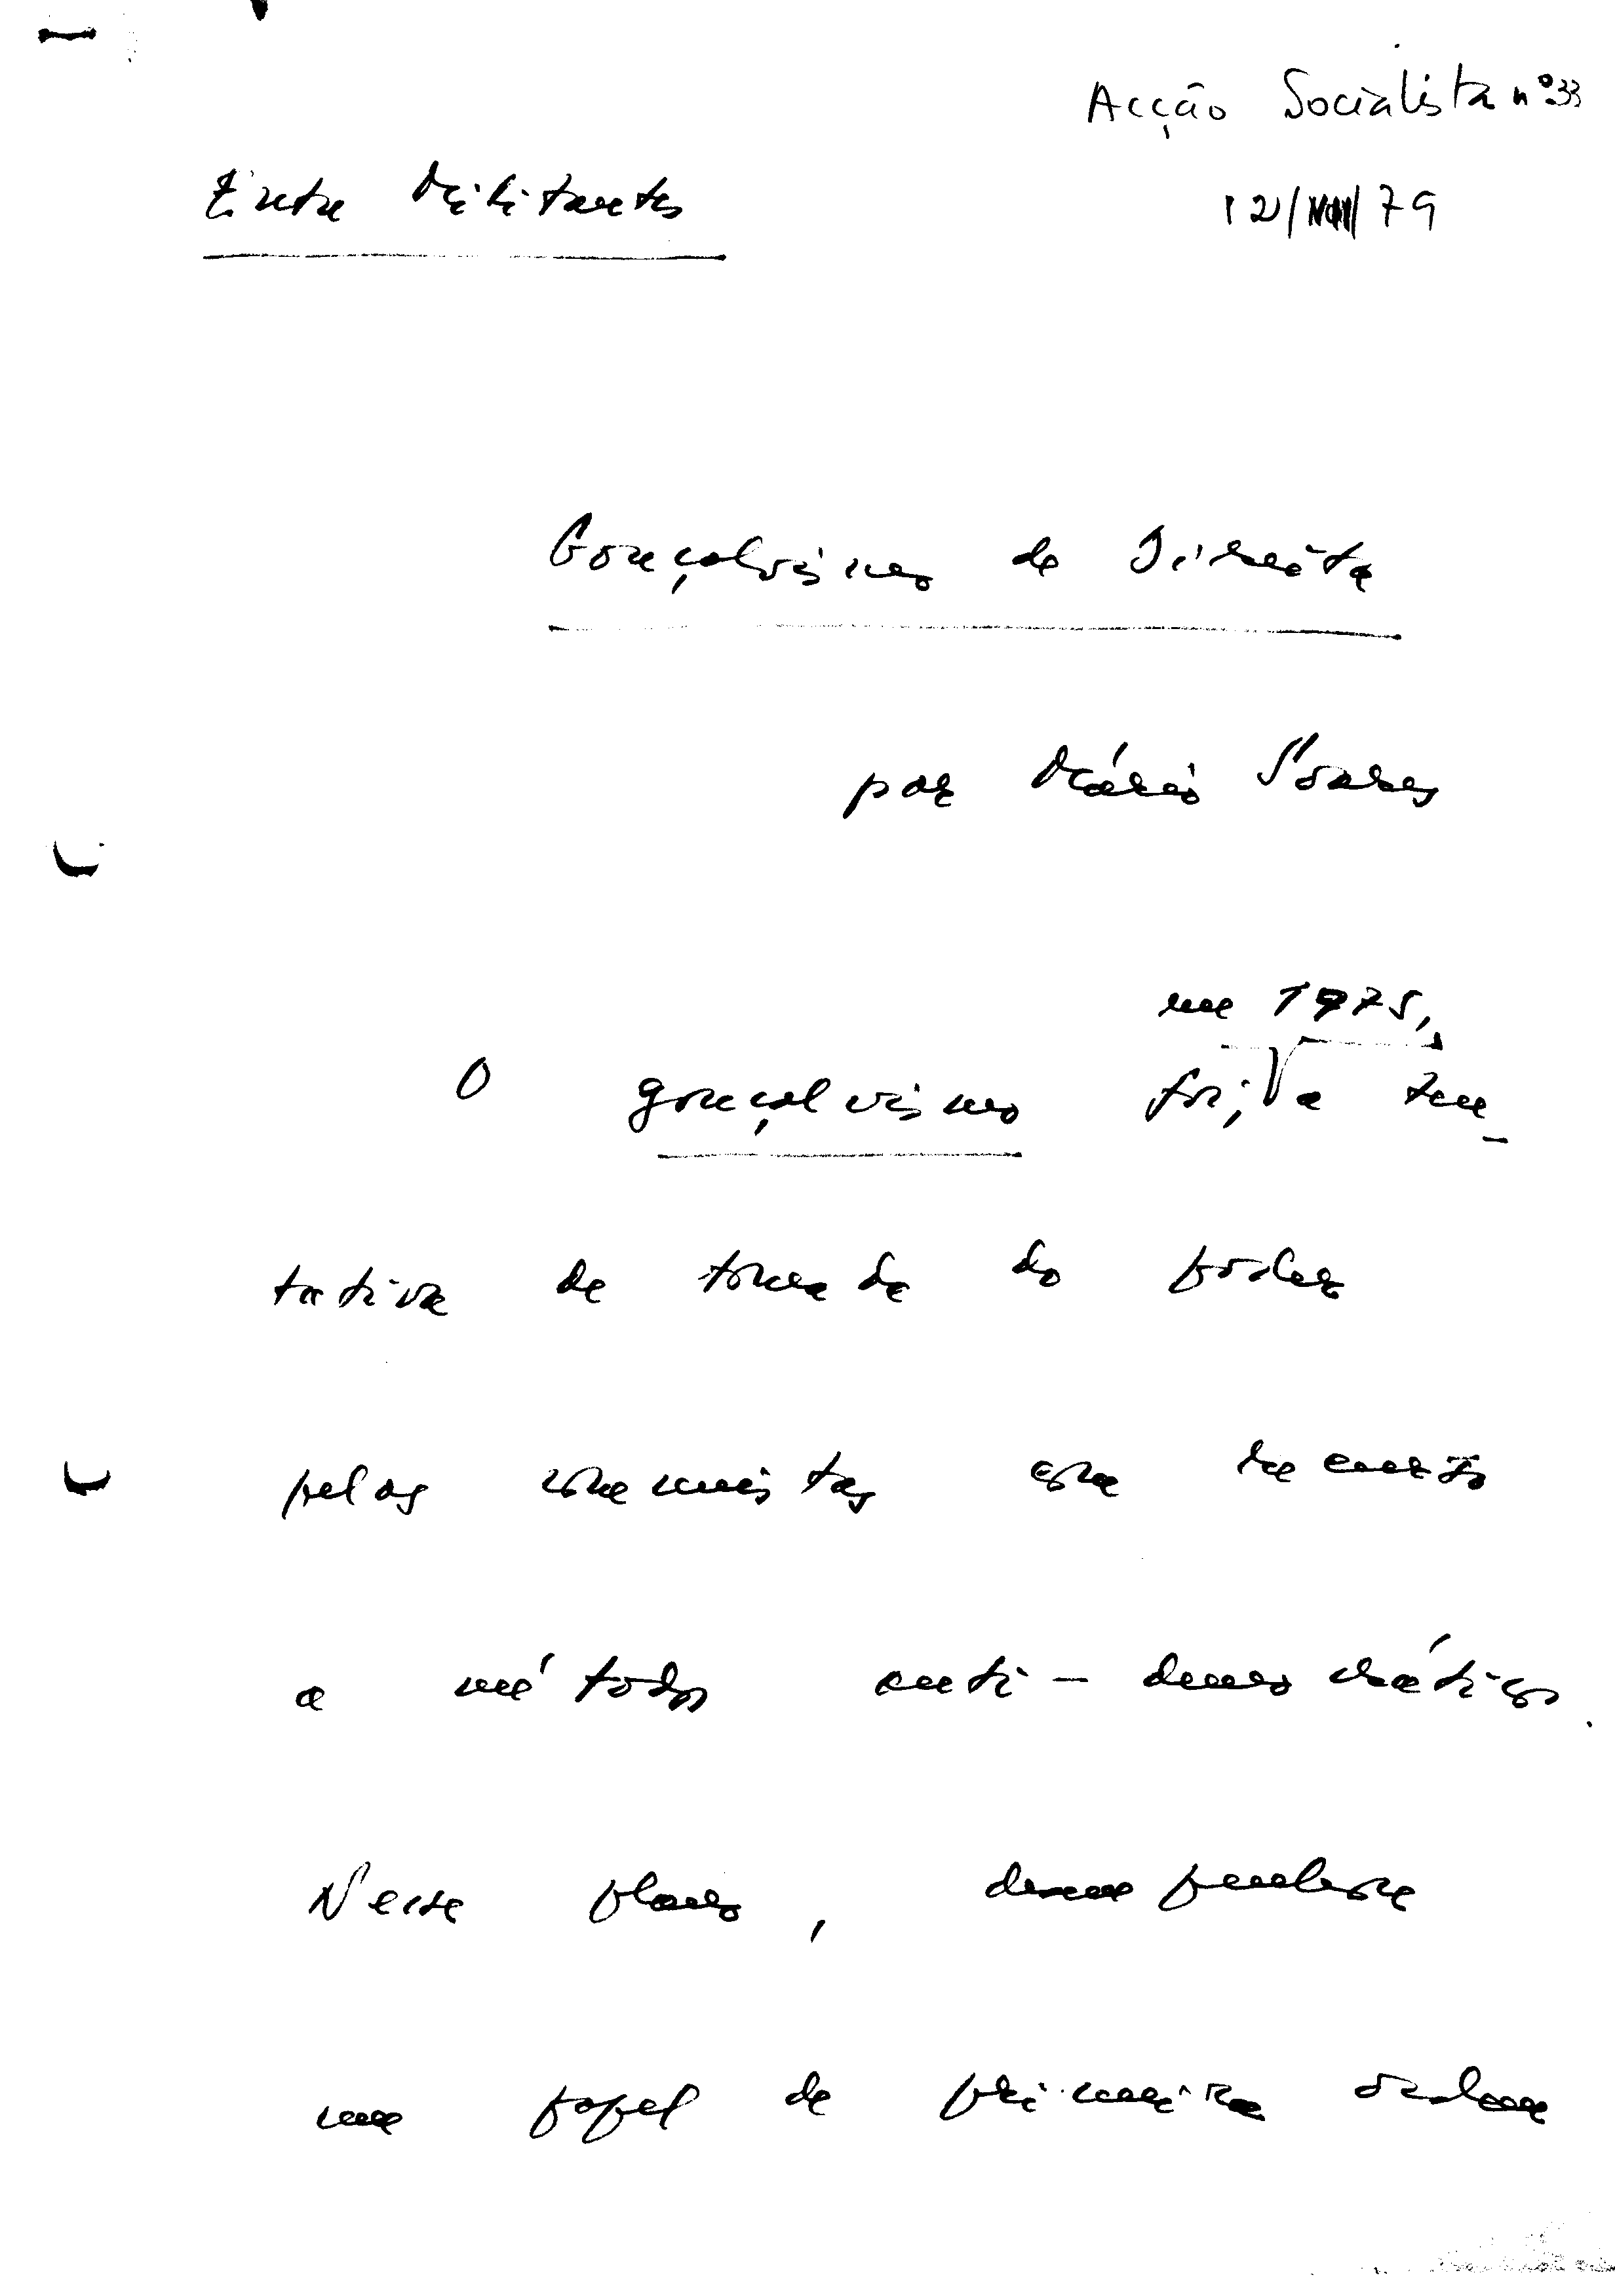 Acção Socialista nº 33
Entre Militantes
12/VII/79
Gonçalvismo de Direita
por Mário Soares
em 1975,
O gonçalvismo foi, a ten-
tativa de tomada do poder
pelos comunistas com recurso
a métodos anti-democráticos.
Nesse plano, desempenhou
um papel de primeira ordem